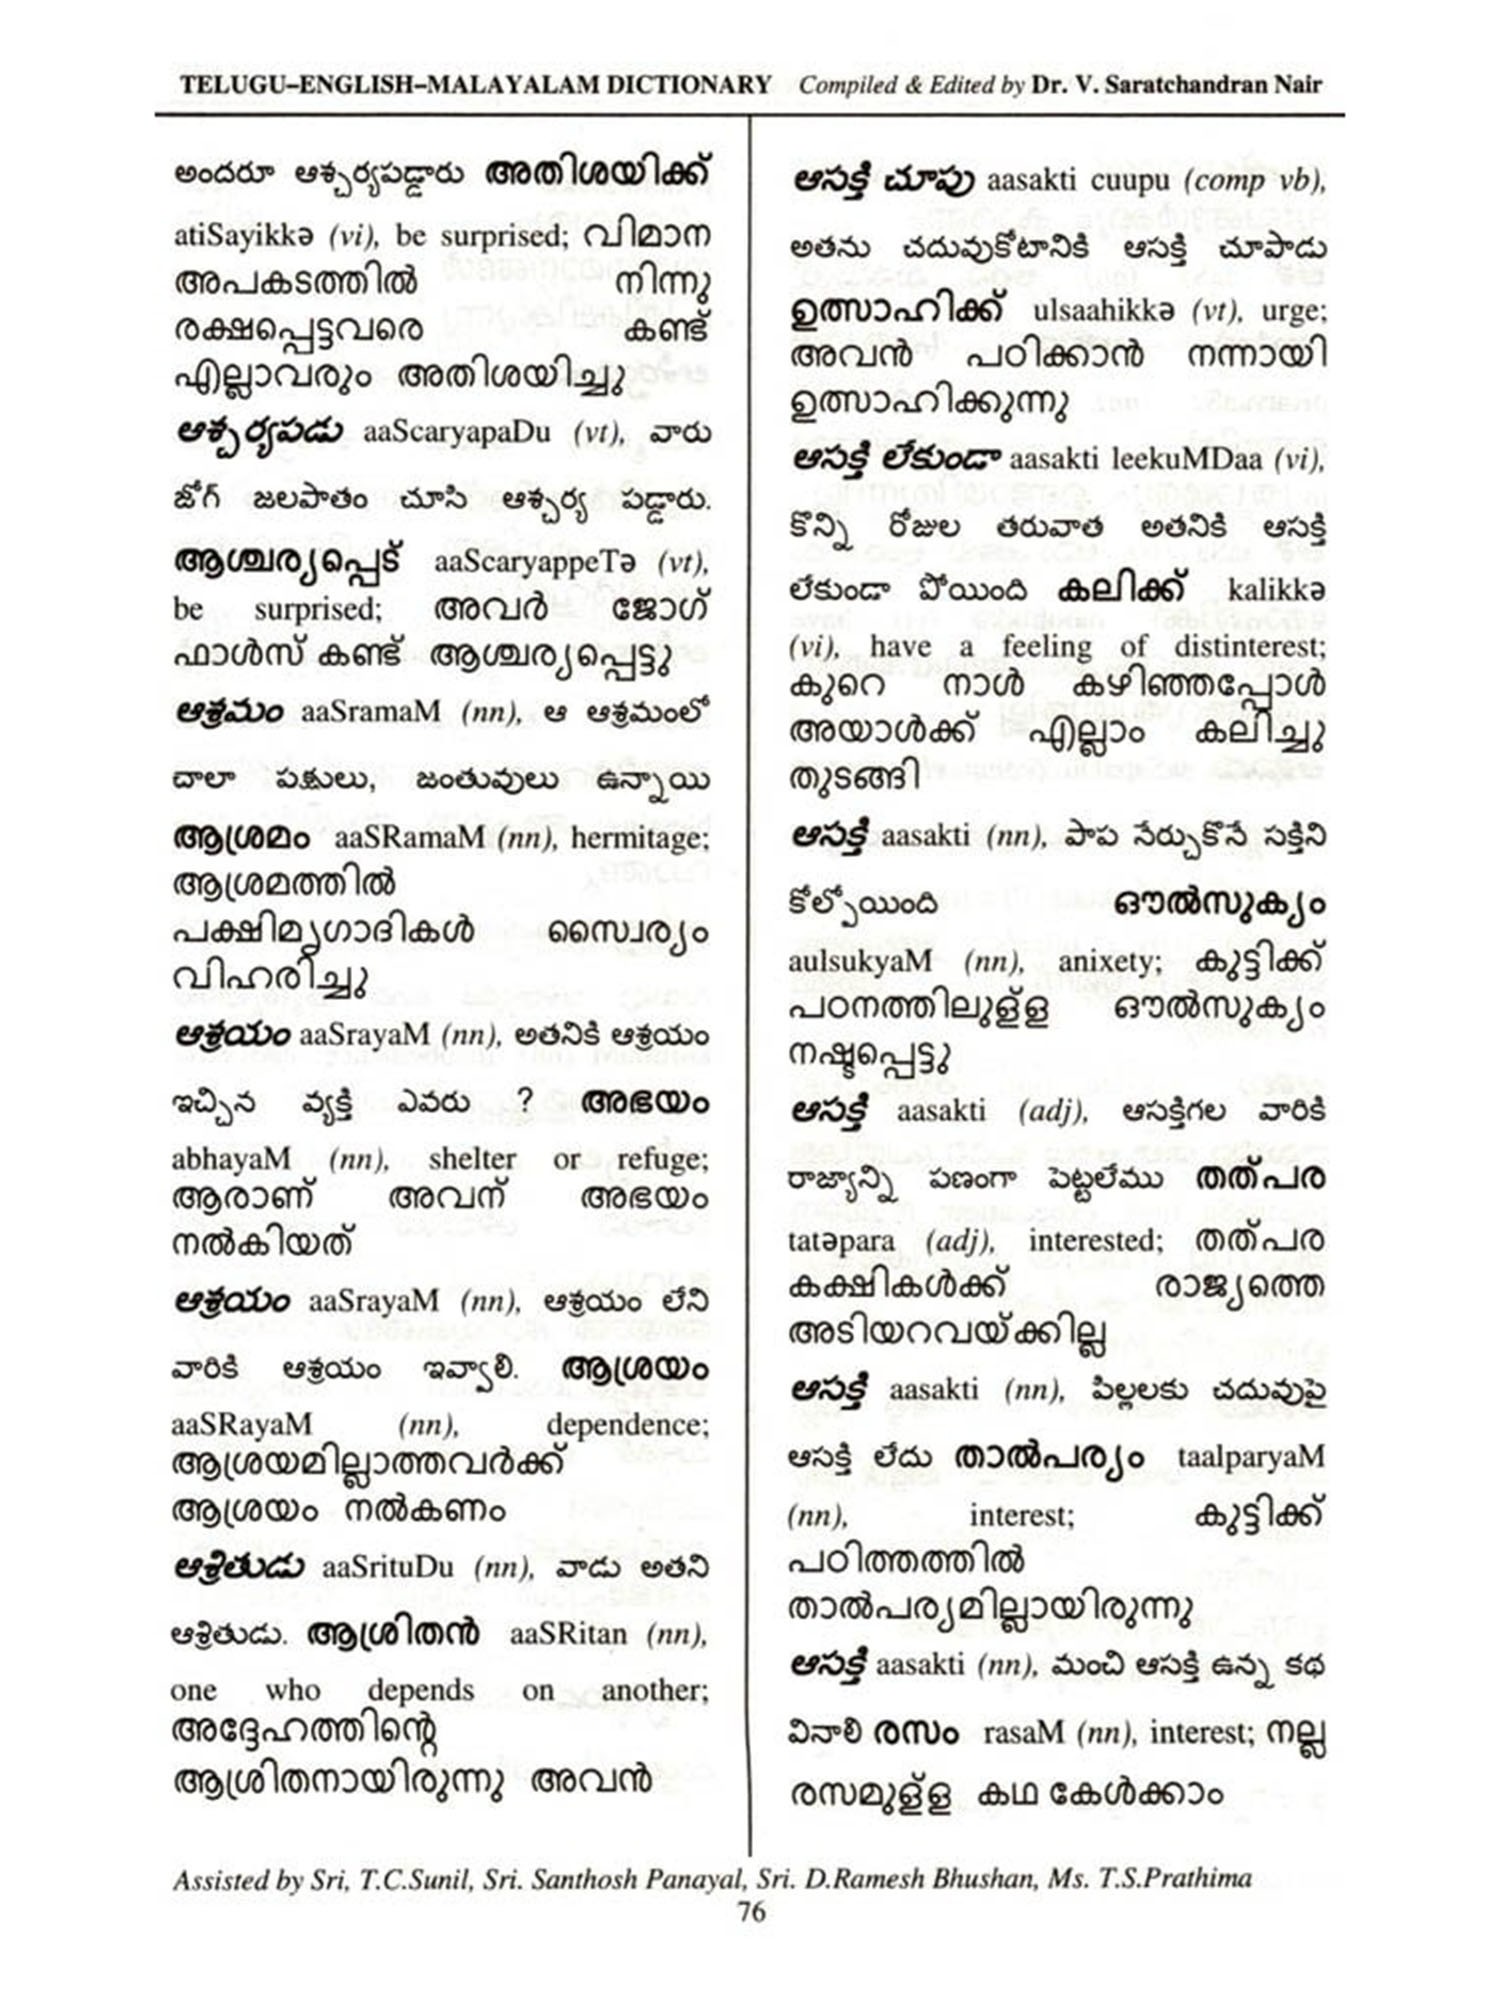 TELUGU–ENGLISH–MALAYALAM DICTIONARY Compiled & Edited by Dr. V. Saratchandran Nair
అందరూ ఆశ్చర్యపడ్డారు അതിശയിക്ക്
atiSayikkə (vi), be surprised; വിമാന
അപകടത്തിൽ നിന്നു
രക്ഷപ്പെട്ടവരെ കണ്ട്
എല്ലാവരും അതിശയിച്ചു
ఆశ్చర్యపడు aaScaryapaDu (vt), వారు
జోగ్ జలపాతం చూసి ఆశ్చర్య పడ్డారు.
ആശ്ചര്യപ്പെട് aaScaryappeTə (vt),
be surprised; അവർ ജോഗ്
ഫാൾസ് കണ്ട് ആശ്ചര്യപ്പെട്ടു
ఆశ్రమం aaSramaM (nn), ఆ ఆశ్రమంలో
చాలా పక్షులు, జంతువులు ఉన్నాయి
ആശ്രമം aaSRamaM (nn), hermitage;
ആശ്രമത്തിൽ
പക്ഷിമൃഗാദികൾ സ്വൈര്യം
വിഹരിച്ചു
ఆశ్రయం aaSrayaM (nn), అతనికి ఆశ్రయం
ఇచ్చిన వ్యక్తి ఎవరు ? അഭയം
abhayaM (nn), shelter or refuge;
ആരാണ് അവന് അഭയം
നൽകിയത്
ఆశ్రయం aaSrayaM (nn), ఆశ్రయం లేని
వారికి ఆశ్రయం ఇవ్వాలి. ആശ്രയം
aaSRayaM (nn), dependence;
ആശ്രയമില്ലാത്തവർക്ക്
ആശ്രയം നൽകണം
ఆశ్రితుడు aaSrituDu (nn), వాడు అతని
ఆశ్రితుడు. ആശ്രിതൻ aaSRitan (nn),
one who depends on another;
അദ്ദേഹത്തിന്റെ
ആശ്രിതനായിരുന്നു അവൻ
ఆసక్తి చూపు aasakti cuupu (comp vb),
అతను చదువుకోటానికి ఆసక్తి చూపాడు
ഉത്സാഹിക്ക് ulsaahikkə (vt), urge;
അവൻ പഠിക്കാൻ നന്നായി
ഉത്സാഹിക്കുന്നു
ఆసక్తి లేకుండా aasakti leekuMDaa (vi),
కొన్ని రోజుల తరువాత అతనికి ఆసక్తి
లేకుండా పోయింది കലിക്ക് kalikkə
(vi), have a feeling of distinterest;
കുറെ നാൾ കഴിഞ്ഞപ്പോൾ
അയാൾക്ക് എല്ലാം കലിച്ചു
തുടങ്ങി
ఆసక్తి aasakti (nn), పాప నేర్చుకొనే సక్తిని
కోల్పోయింది ഔൽസുക്യം
aulsukyaM (nn), anixety; കുട്ടിക്ക്
പഠനത്തിലുള്ള ഔൽസുക്യം
നഷ്ടപ്പെട്ടു
ఆసక్తి aasakti (adj), ఆసక్తిగల వారికి
రాజ్యాన్ని పణంగా పెట్టలేము തത്പര
tatəpara (adj), interested; തത്പര
കക്ഷികൾക്ക് രാജ്യത്തെ
അടിയറവയ്ക്കില്ല
ఆసక్తి aasakti (nn), పిల్లలకు చదువుపై
ఆసక్తి లేదు താൽപര്യം taalparyaM
(nn), interest; കുട്ടിക്ക്
പഠിത്തത്തിൽ
താൽപര്യമില്ലായിരുന്നു
ఆసక్తి aasakti (nn), మంచి ఆసక్తి ఉన్న కథ
వినాలి രസം rasaM (nn), interest; നല്ല
രസമുള്ള കഥ കേൾക്കാം
Assisted by Sri, T.C.Sunil, Sri. Santhosh Panayal, Sri. D.Ramesh Bhushan, Ms. T.S.Prathima
76